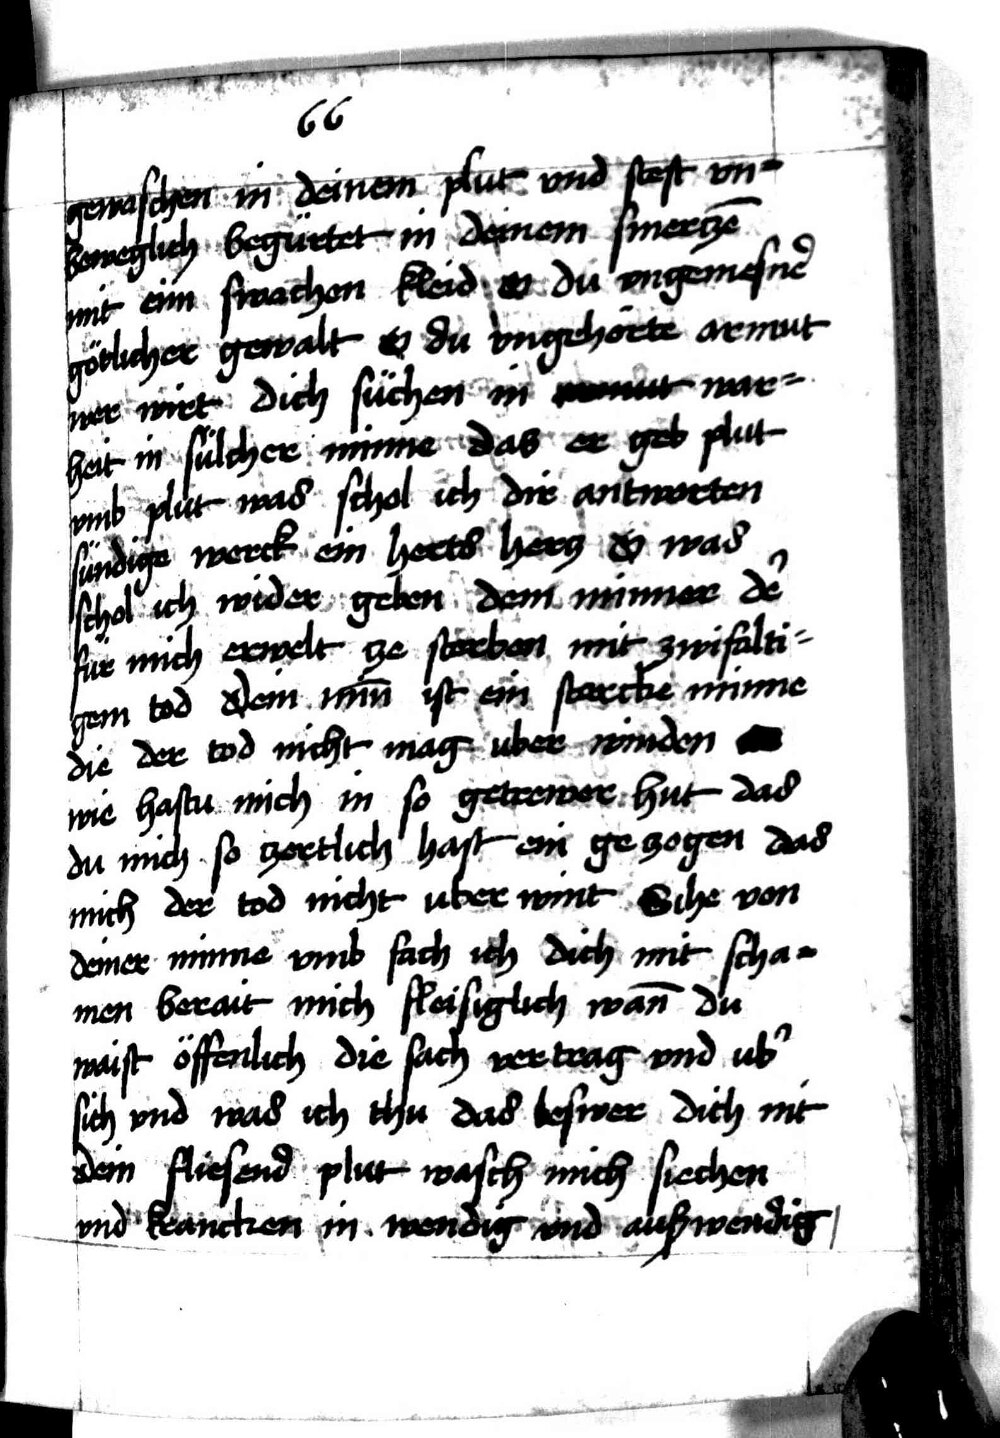 66
gewaschen in deinem plut vnd stest vn=
beweglich begürtet in deinem smerczē
mit eim swachen kleid O du vngemesne᷑
götlicher gewalt O du vngehörte armut
wer wirt dich süchen in war=
heit in sülcher minne das er geb plut
vmb plut was schol ich dir antworten
sündige werck ein herts hercz O was
schol ich wider geben dem minner de᷑
für mich erwelt ze sterben mit zwifalti=
gem tod Dein miñ ist ein starcke minne
die der tod nicht mag uber winden
wie hastu mich in so getrewer hut das
du mich so zertlich hast ein gezogen das
mich der tod nicht uber wint Sihe von
deiner minne vmb fach ich dich mit scha=
men berait mich fleisiglich wañ du
waist öffenlich die sach vertrag vnd ub᷑
sich vnd was ich thu das beswer dich nit
Dein fliesend plut wasch mich siechen
vnd krancken in wendig vnd außwendig